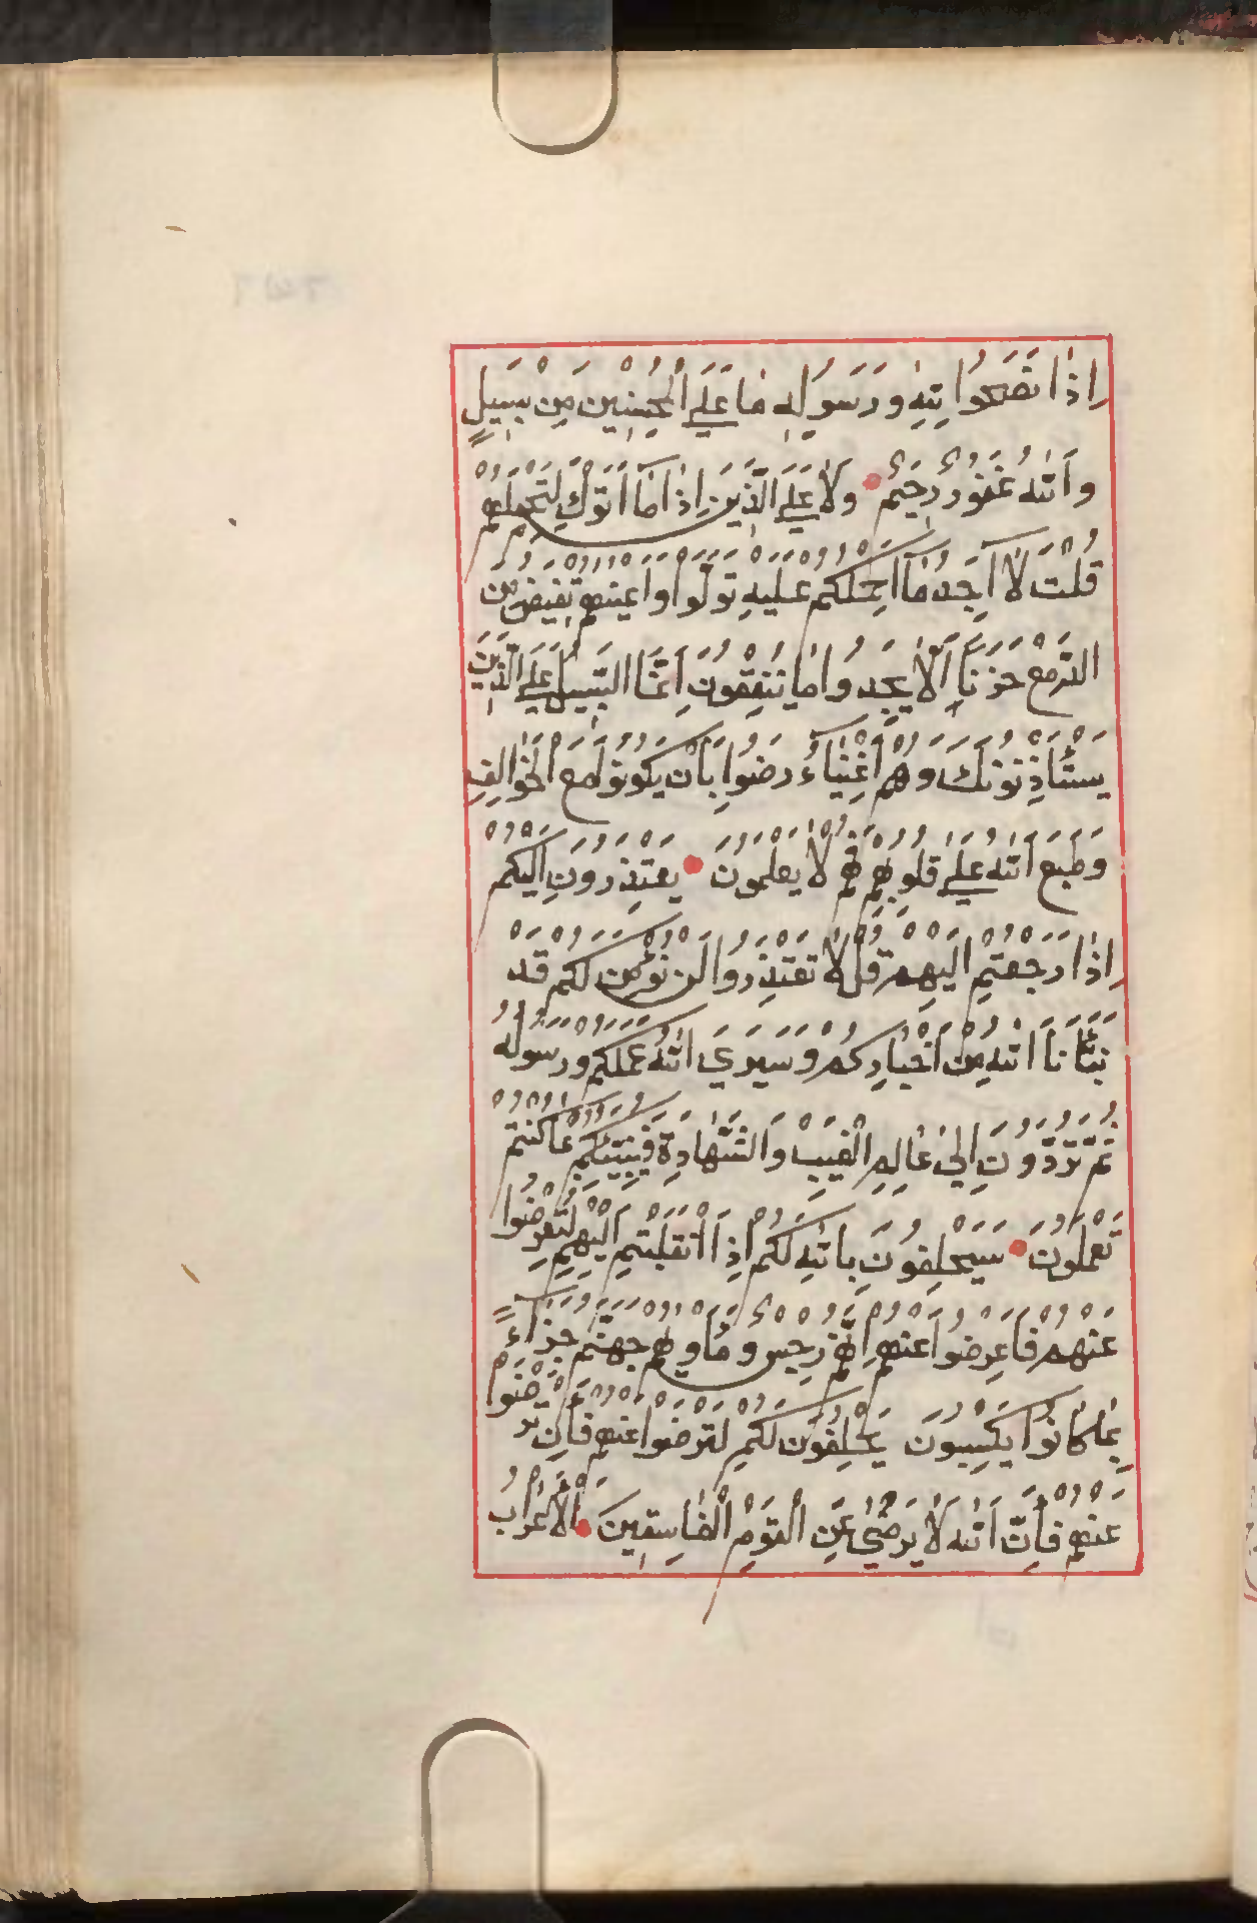 إِذَا نَصَحُوا لِلّٰهِ وَرَسُولِهِ مَا عَلَى الْمُحْسِنِينَ مِنْ سَبِيلٍ
وَاللّٰهُ غَفُورٌ رَحِيمٌ وَلَا عَلَى الَّذِينَ إِذَا مَا أَتَوْكَ لِتَحْمِلَهُمْ
قُلْتَ لَا أَجِدُ مَا أَحْمِلُكُمْ عَلَيْهِ تَوَلَّوْا وَأَعْيُنُهُمْ تَفِيضُ مِنَ
الدَّمْعِ حَزَنًا أَلَّا يَجِدُوا مَا يُنْفِقُونَ إِنَّمَا السَّبِيلُ عَلَى الَّذِينَ
يَسْتَأْذِنُونَكَ وَهُمْ أَغْنِيَاءُ رَضُوا بِأَنْ يَكُونُوا مَعَ الْخَوَالِفِ
وَطَبَعَ اللّٰهُ عَلَى قُلُوبِهِمْ فَهُمْ لَا يَعْلَمُونَ يَعْتَذِرُونَ إِلَيْكُمْ
إِذَا رَجَعْتُمْ إِلَيْهِمْ قُلْ لَا تَعْتَذِرُوا لَنْ نُؤْمِنَ لَكُمْ قَدْ
نَبَّأَنَا اللّٰهُ مِنْ أَخْبَارِكُمْ وَسَيَرَى اللّٰهُ عَمَلَكُمْ وَرَسُولُهُ
ثُمَّ تُرَدُّونَ إِلَى عَالِمِ الْغَيْبِ وَالشَّهَادَةِ فَيُنَبِّئُكُمْ بِمَا كُنْتُمْ
تَعْمَلُونَ سَيَحْلِفُونَ بِاللّٰهِ لَكُمْ إِذَا انْقَلَبْتُمْ إِلَيْهِمْ لِتُعْرِضُوا
عَنْهُمْ فَأَعْرِضُوا عَنْهُمْ إِنَّهُمْ رِجْسٌ وَمَأْوَاهُمْ جَهَنَّمُ جَزَاءً
بِمَا كَانُوا يَكْسِبُونَ يَحْلِفُونَ لَكُمْ لِتَرْضَوْا عَنْهُمْ فَإِنْ تَرْضَوْا
عَنْهُمْ فَإِنَّ اللّٰهَ لَا يَرْضَى عَنِ الْقَوْمِ الْفَاسِقِينَ الْأَعْرَابُ